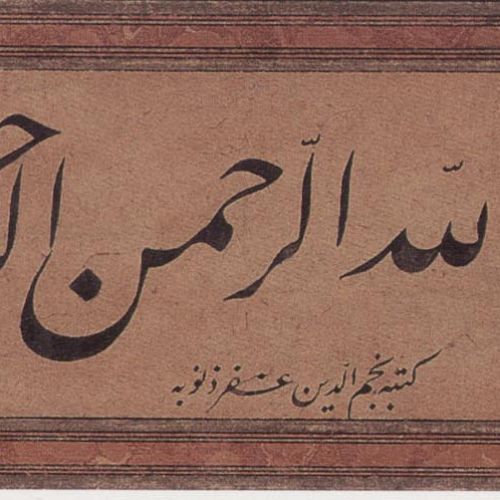 لله الرّحمن الرح
كتبه نجم الدّين غفر ذنوبه